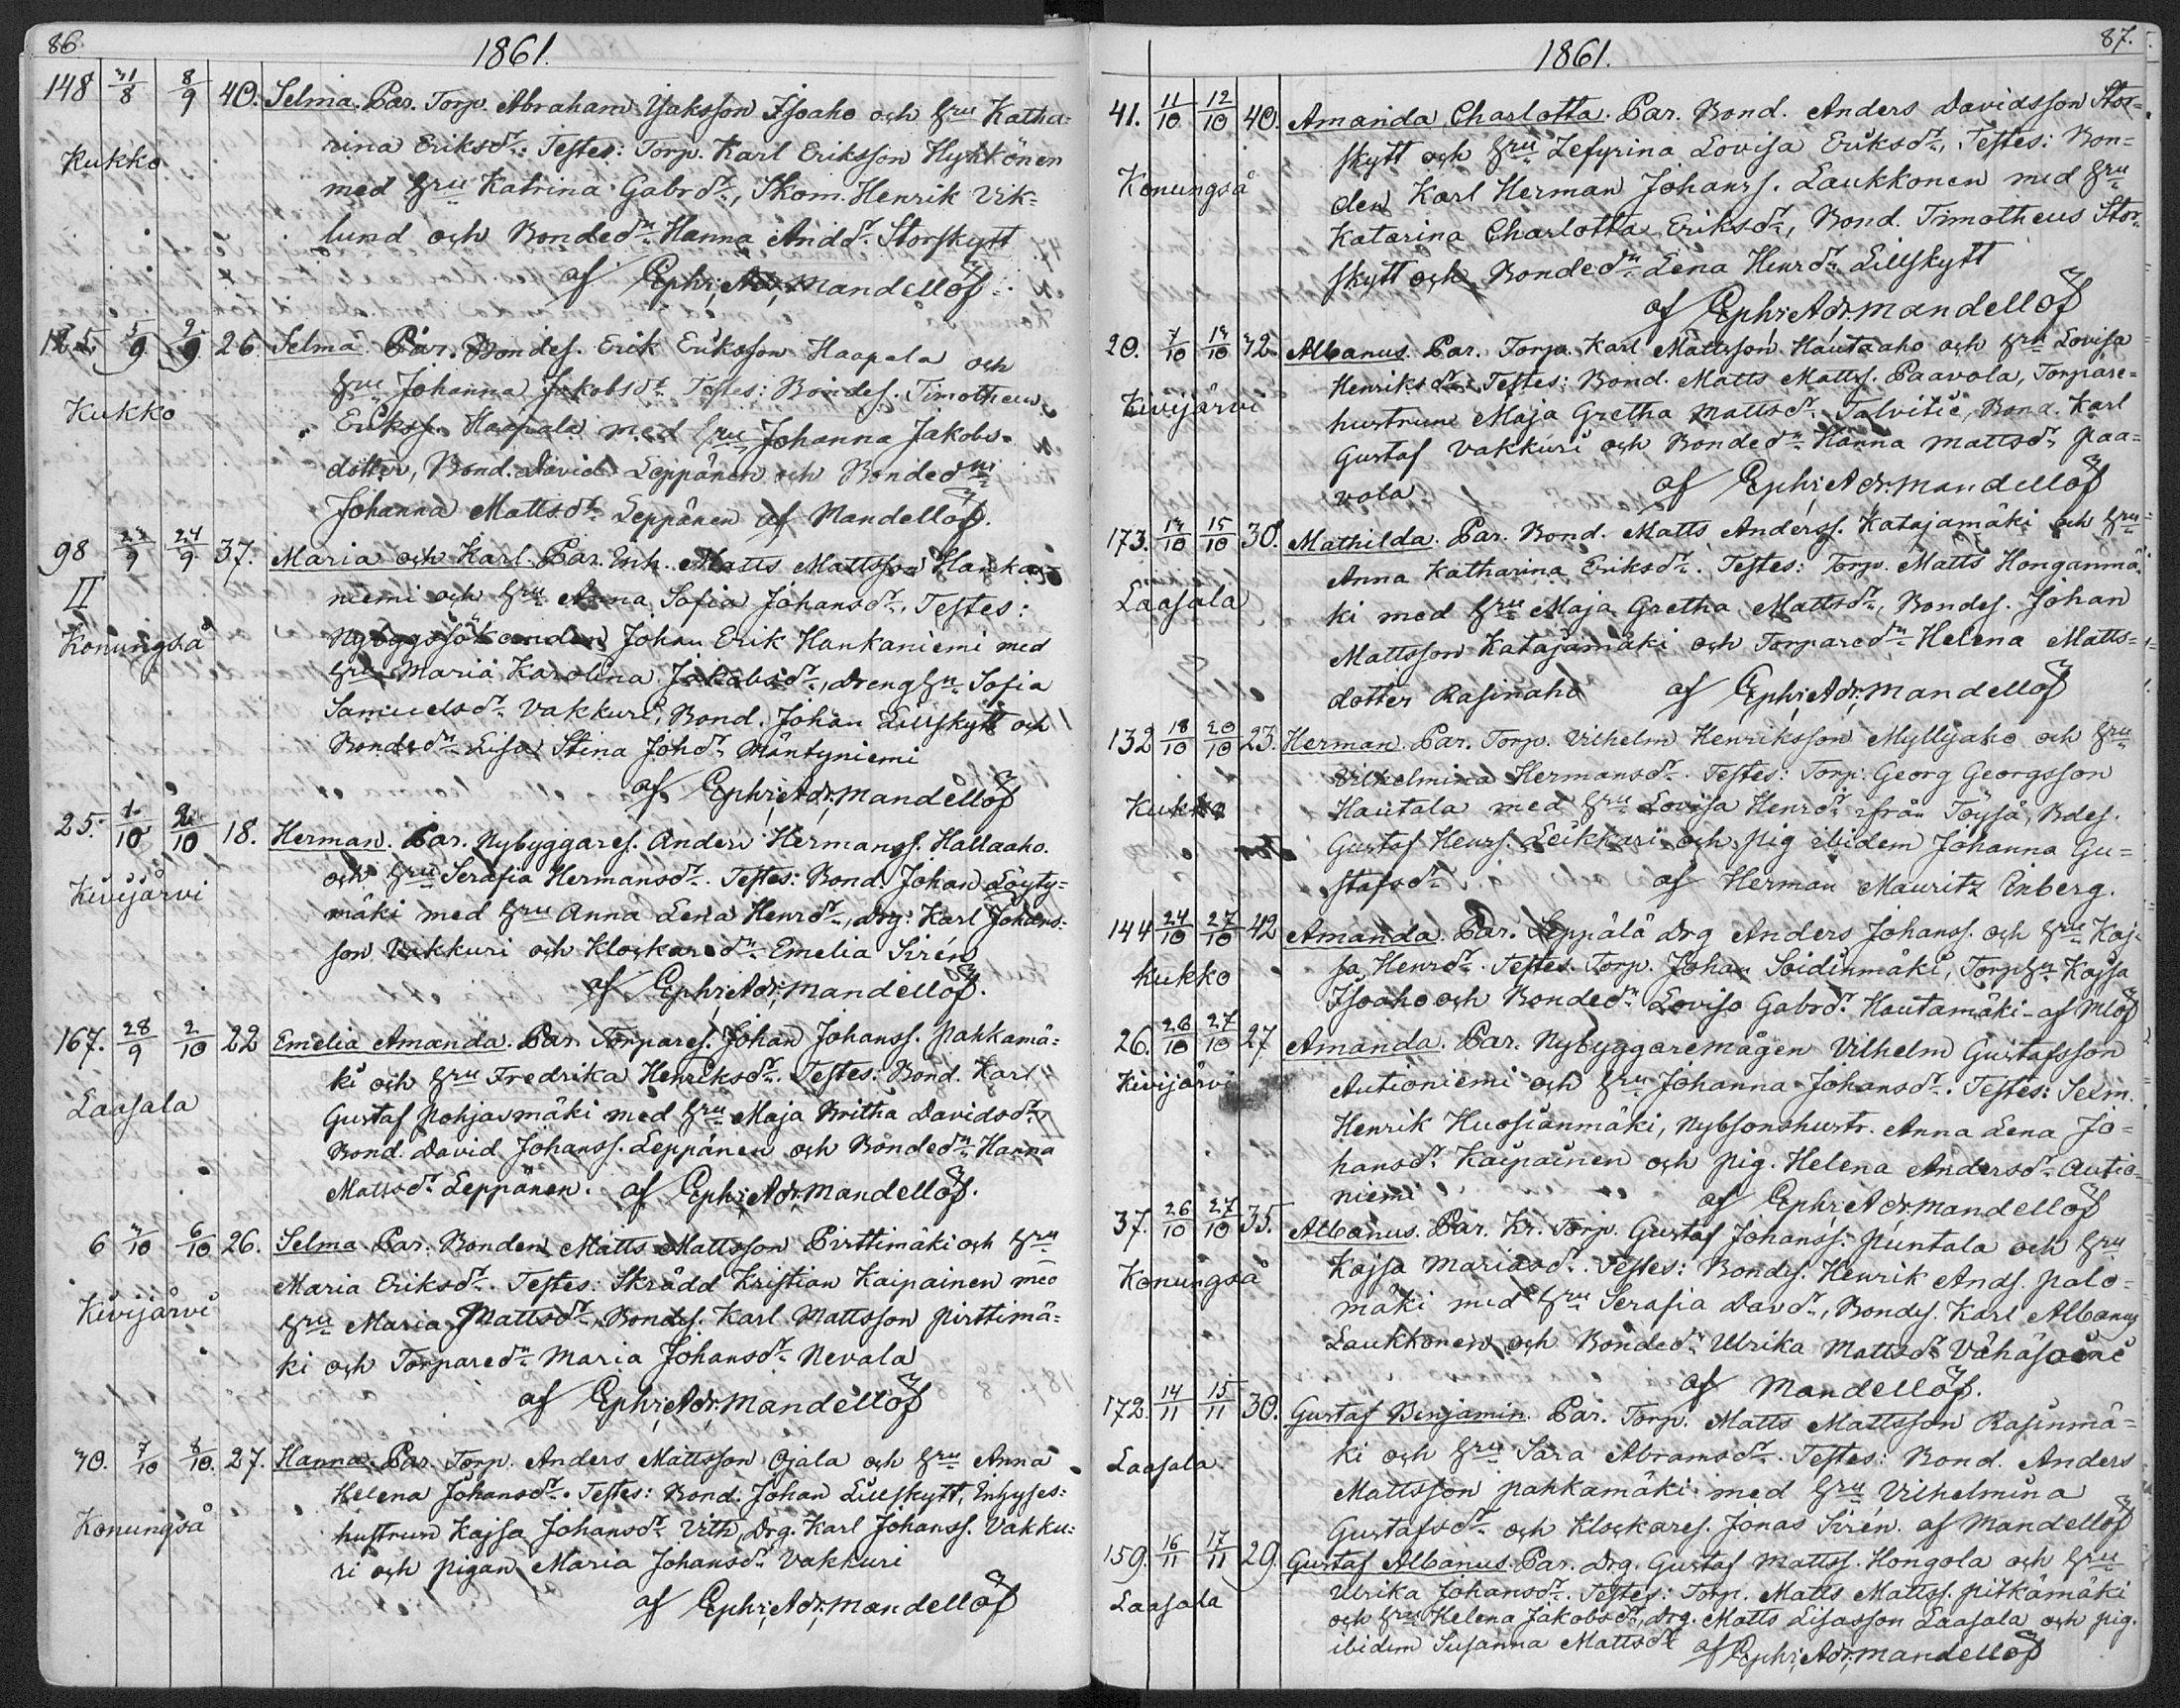 86.
1861.
148 31/8 8/9 40. Selma. Par. Torp. Abraham Isaksson Isoaho och hru Katha-
Kukko rina Eriksdr. Testes: Torp. Karl Eriksson Hyttönen
med hru Katrina Gabrdr, Skom. Henrik Vik-
lund och Bondedn Hanna Anddr Storskytt
af Ephr; Adr; Mandellöf.
125 5/9 9/9 26 Selma. Par. Bondes. Erik Eriksson Haapala och
hru Johanna Jakobsdr Testes: Bondes. Timotheus
Kukko Erikss. Haapala med hru Johanna Jakobs-
dotter, Bond. David Leppänen och Bondedn
Johanna Mattsdr Leppänen af Mandellöf.
98 23/9 24/9 37. Maria och Karl. Par. Inh. Matts Mattsson Hanka-
II niemi och hru Anna Sofia Johansdr. Testes:
Konungså Nybyggssökanden Johan Erik Hankaniemi med
hru Maria Karolina Jakobsdr, drenghu Sofia
Samuelsdr Vakkuri, Bond. Johan Lillskytt och
Bondedn Lisa Stina Johdr Mäntyniemi
af Ephr; Adr; Mandellöf
25. 1/10 2/10 18. Herman. Par. Nybyggares. Anders Hermanss. Hallaaho.
Kivijärvi och hru Serafia Hermansdr. Testes: Bond. Johan Löyty-
mäki med hru Anna Lena Henrdr, drg: Karl Johans-
son Vikkuri och Klockaredn Emelia Sirén
af Ephr; Adr; Mandellöf.
167. 28/9 2/10 22 Emelia Amanda. Par. Torpares. Johan Johanss. Pahkamä-
ki och hru Fredrika Henriksdr. Testes: Bond. Karl
Laasala Gustaf Pohjasmäki med hru Maja Britha Davidsdr
Bond. David Johanss. Leppänen och Bondedn Hanna
Mattsdr Leppänen. af Ephr; Adr; Mandellöf.
6 3/10 6/10 26. Selma. Par. Bonden Matts Mattsson Pirttimäki och hru
Maria Eriksdr. Testes: Skrädd Kristian Kaipainen med
Kivijärvi hru Maria Mattsdr, Bondes. Karl Mattsson Pirttimä-
ki och Torparedn Maria Johansdr Nevala
af Ephr; Adr; Mandellöf
30. 7/10 8/10. 27. Hanna. Par. Torp. Anders Mattsson Ojala och hru Anna
Helena Johansdr. Testes: Bond. Johan Lillskytt, Inhyses-
Konungså hustrun Kajsa Johansdr Vith, Drg. Karl Johanss. Vakku-
ri och pigan Maria Johansdr Vakkuri
af Ephr; Adr; Mandellöf
87.
1861.
41. 11/10 12/10 40. Amanda Charlotta. Par. Bond. Anders Davidsson Stor-
skytt och hru Zefyrina Lovisa Eriksdr, Testes: Bon-
Konungså den Karl Herman Johanss. Laukkonen med hru
Katarina Charlotta Eriksdr, Bond. Timotheus Stor-
skytt och Bondedn Lena Henrdr Lillskytt
af Ephr; Adr; Mandellöf
20. 7/10 13/10 32. Albanus. Par. Torp. Karl Mattsson Hautaaho och hru Lovisa
Henriksdr. Testes: Bond. Matts Mattss. Paavola, Torpare-
Kivijärvi hustrun Maja Gretha Mattsdr Talvitie, Bond. Karl
Gustaf Vakkuri och Bondedn Hanna Mattsdr Paa-
vola af Ephr; Adr; Mandellöf
173. 13/10 15/10 30. Mathilda. Par. Bond. Matts Anderss. Katajamäki och hru
Anna Katharina Eriksdr. Testes: Torp. Matts Honganmä-
Laasala ki med hru Maja Gretha Mattsdr, Bondes. Johan
Mattsson Katajamäki och Torparedn Helena Matts-
dotter Rasinaho af Ephr; Adr; Mandellöf
132 18/10 20/10 23. Herman. Par. Torp. Vilhelm Henriksson Myllyaho och hru
Vilhelmina Hermansdr. Testes: Torp. Georg Georgsson
Kukko Hautala med hru Lovisa Henrdr ifrån Töysä, Bdes.
Gustaf Henrs. Leikkari och pig ibidem Johanna Gu-
stafsdr af Herman Mauritz Enberg.
144 24/10 27/10 42 Amanda. Par. Seppälä Drg Anders Johanss. och hru Kaj-
Kukko sa Henrdr. Testes. Torp. Johan Soidinmäki, Torphu Kajsa
Isoaho och Bondedn Lovisa Gabrdr Hautamäki - af Mlöf
26. 26/10 27/10 27 Amanda. Par. Nybyggaremågen Vilhelm Gustafsson
Kivijärvi Autioniemi och hru Johanna Johansdr. Testes: Sexm.
Henrik Huosianmäki, Nybsonshustr. Anna Lena Jo-
hansdr Kaipainen och pig. Helena Andersdr Autio-
niemi af Ephr; Adr; Mandellöf
37. 26/10 27/10 35. Albanus. Par. Kr. Torp. Gustaf Johanss. Puntala och hru
Konungså Kajsa Mariasdr. Testes: Bondes. Henrik Ands. Palo-
mäki med hru Serafia Davdr, Bondes. Karl Albanus
Laukkonen och Bondedn Ulrika Mattsdr Vähäsoini
af Mandellöf.
172. 14/11 15/11 30. Gustaf Benjamin. Par. Torp. Matts Mattsson Rasinmä-
ki och hru Sara Abramsdr. Testes: Bond. Anders
Laasala Mattsson Pahkamäki med hru Vilhelmina
Gustafsdr och Klockares. Jonas Sirén. af Mandellöf
159. 16/11 17/11 29. Gustaf Albanus. Par. Drg. Gustaf Mattss. Hongola och hru
Ulrika Johansdr. Testes: Torp. Matts Mattss. Pitkämäki
Laasala och hru Helena Jakobsdr, Drg. Matts Lisasson Laasala och pig.
ibidem Susanna Mattsdr af Ephr; Adr; Mandellöf